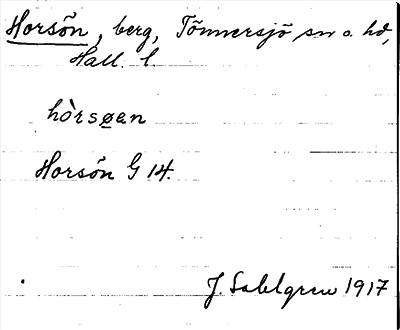 Horsön, berg, Tönnersjö sn o. hd,
Hall. l.
hòrsøen
Horsön G 14.
J. Sahlgren 1917